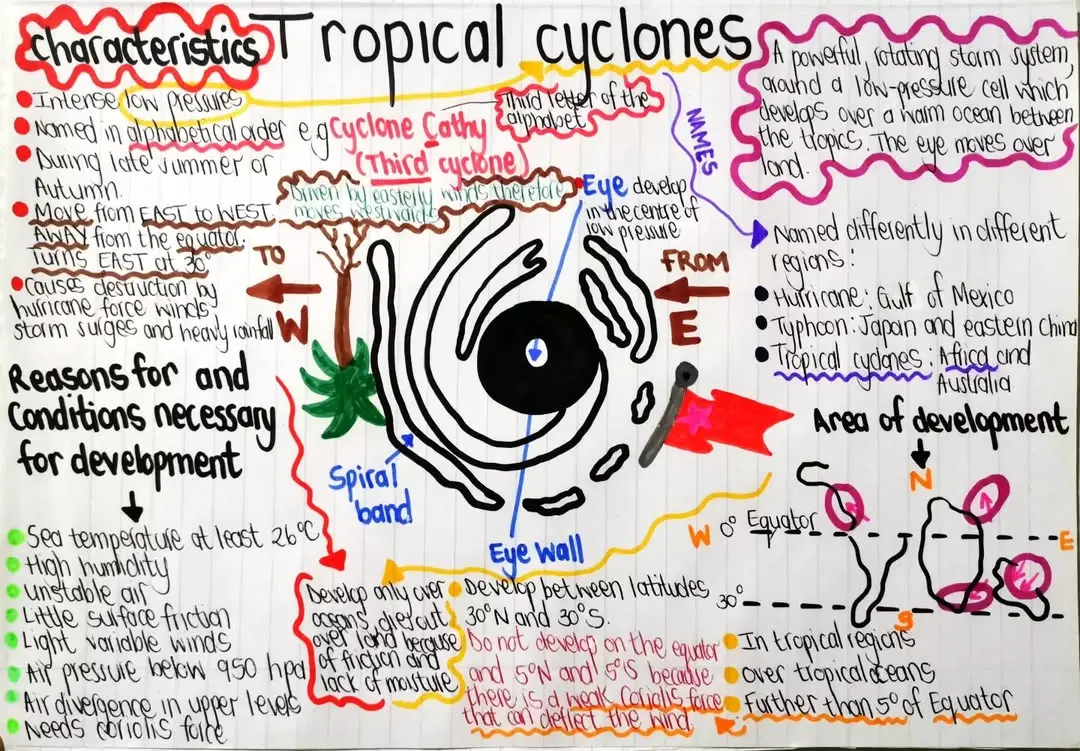 Tropical cyclones
Characteristics
Intense low pressures
Named in alphabetical order e.g Cyclone Cathy
(Third cyclone)
Third letter of the
alphabet
During late summer or
Autumn.
Move from EAST to WEST
AWAY from the equator.
Turns EAST at 30°
Driven by easterly winds therefore
moves westwards
Causes destruction by
hurricane force winds
storm surges and heavy rainfall
TO
W
FROM
E
Eye develop
in the centre of
low pressure
Spiral
band
Eye Wall
NAMES
A powerful, rotating storm system,
around a low-pressure cell which
develops over a warm ocean between
the tropics. The eye moves over
land.
Named differently in different
regions:
Hurricane: Gulf of Mexico
Typhoon: Japan and eastern China
Tropical cyclones: Africa and
Australia
Reasons for and
Conditions necessary
for development
Sea temperature at least 26°C
High humidity
unstable air
Little surface friction
Light variable winds
Air pressure below 950 hpa
Air divergence in upper levels
Needs coriolis force
Develop only over
oceans, dies out
over land because
of friction and
lack of moisture
Develop between latitudes
30°N and 30°S.
Do not develop on the equator
and 5°N and 5°S because
there is a weak coriolis force
that can deflect the wind
Area of development
N
W 0° Equator E
30°
S
In tropical regions
over tropical oceans
Further than 5° of Equator